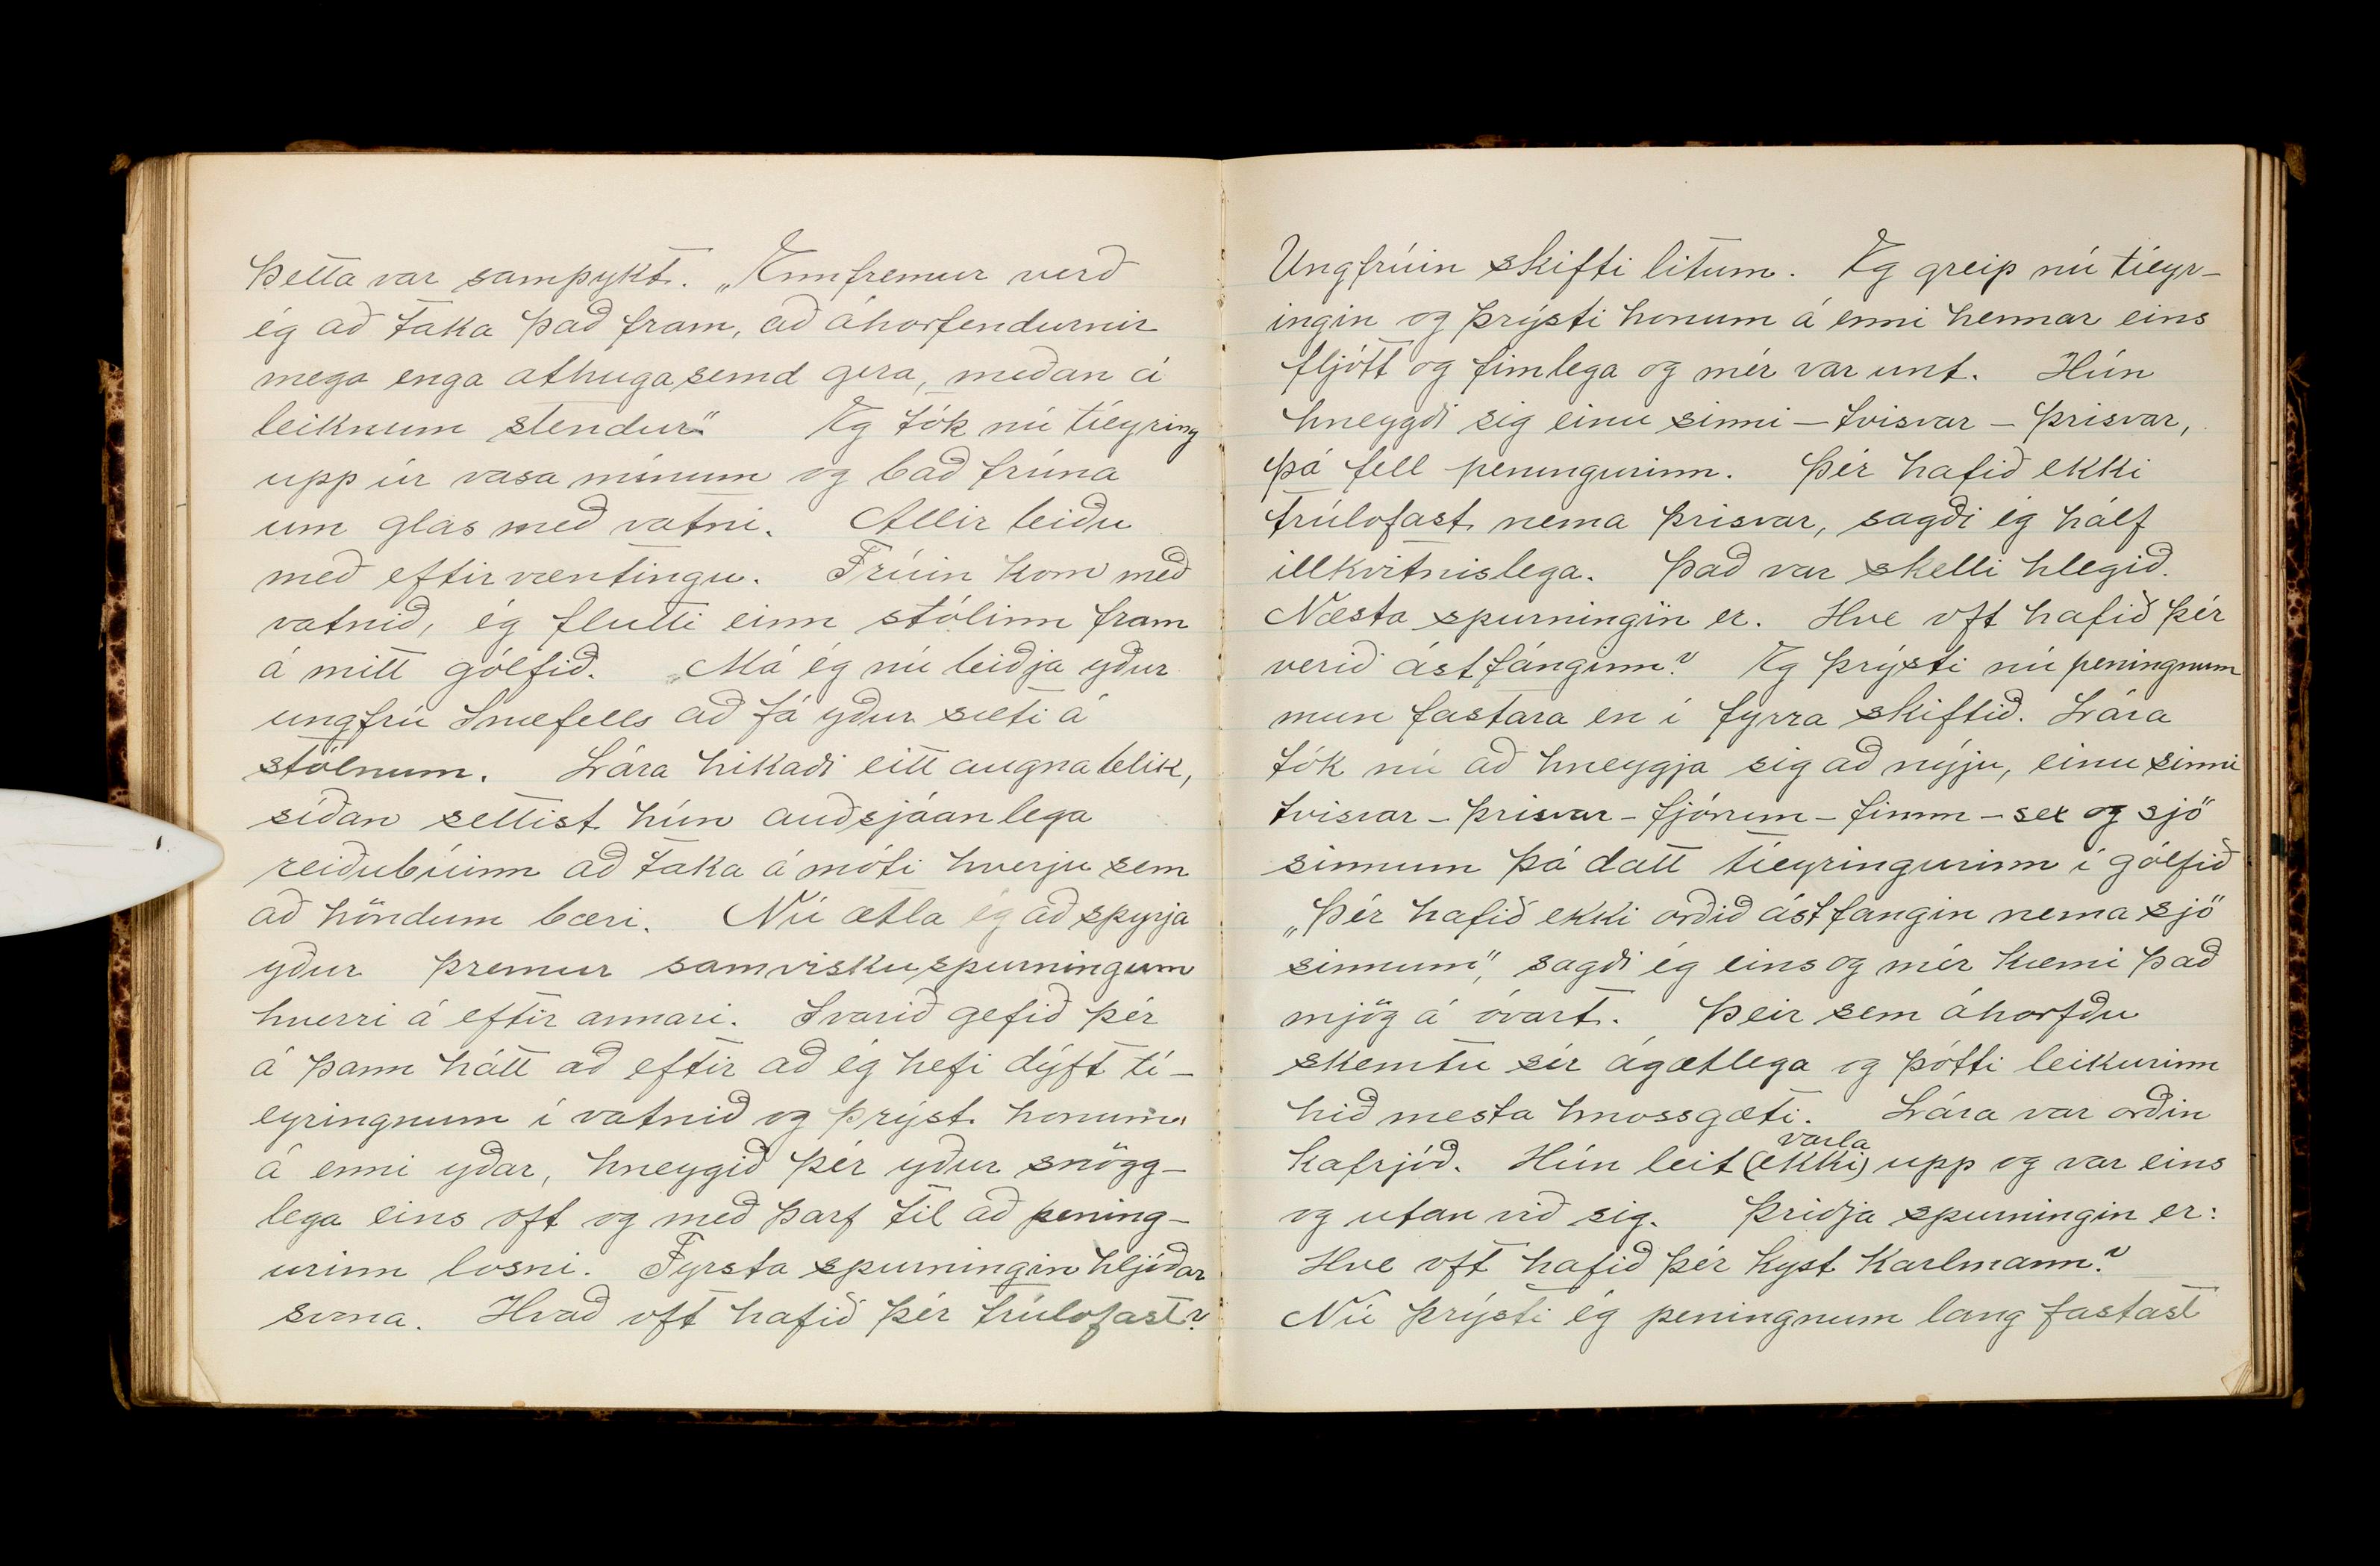 Þetta var samþykt. „Ennfremur verð
ég að taka það fram, að áhorfendurnir
mega enga athugasemd gera, meðan á
leiknum stendur“ Eg tók nú tíeyring
upp úr vasa mínum og bað frúna
um glas með vatni. Allir biðu
með eftirvæntingu. Frúin kom með
vatnið, ég flutti einn stólinn fram
á mitt gólfið. Má ég nú biðja yður
ungfrú Snæfells að fá yður sæti á
stólnum. Lára hikaði eitt augnablik,
síðan settist hún auðsjáanlega
reiðubúinn að taka á móti hverju sem
að höndum bæri. Nú ætla ég að spyrja
yður þremur samviskuspurningum
hverri á eftir annari. Svarið gefið þér
á þann hátt að eftir að ég hefi dýft tí-
eyringnum í vatnið og þrýst honum
á enni yðar, hneygið þér yður snögg-
lega eins oft og með þarf til að pening-
urinn losni. Fyrsta spurningin hljóðar
svona. Hvað oft hafið þér trúlofast?
Ungfrúin skifti litum. Eg greip nú tíeyr-
ingin og þrýsti honum á enni hennar eins
fljótt og fimlega og mér var unt. Hún
hneygði sig einu sinni – tvisvar – þrisvar,
þá fell peningurinn. Þér hafið ekki
trúlofast nema þrisvar, sagði ég hálf
illkvitnislega. Það var skelli hlegið.
Næsta spurningin er. Hve oft hafið þér
verið ástfánginn? Eg þrýsti nú peningnum
mun fastara en í fyrra skiftið. Lára
tók nú að hneygja sig að nýju, einu sinni
tvisvar – þrisvar – fjórum – fimm – sex og sjö
sinnum þá datt tíeyringurinn í gólfið
„Þér hafið ekki orðið ástfangin nema sjö
sinnum“, sagði ég eins og mér kæmi það
mjög á óvart. Þeir sem áhorfðu
skemtu sér ágætlega og þótti leikurinn
hið mesta hnossgæti. Lára var orðin
varla
kafrjóð. Hún leit (ekki) upp og var eins
og utan við sig. Þriðja spurningin er:
Hve oft hafið þér kyst karlmann?
Nú þrýsti ég peningnum lang fastast